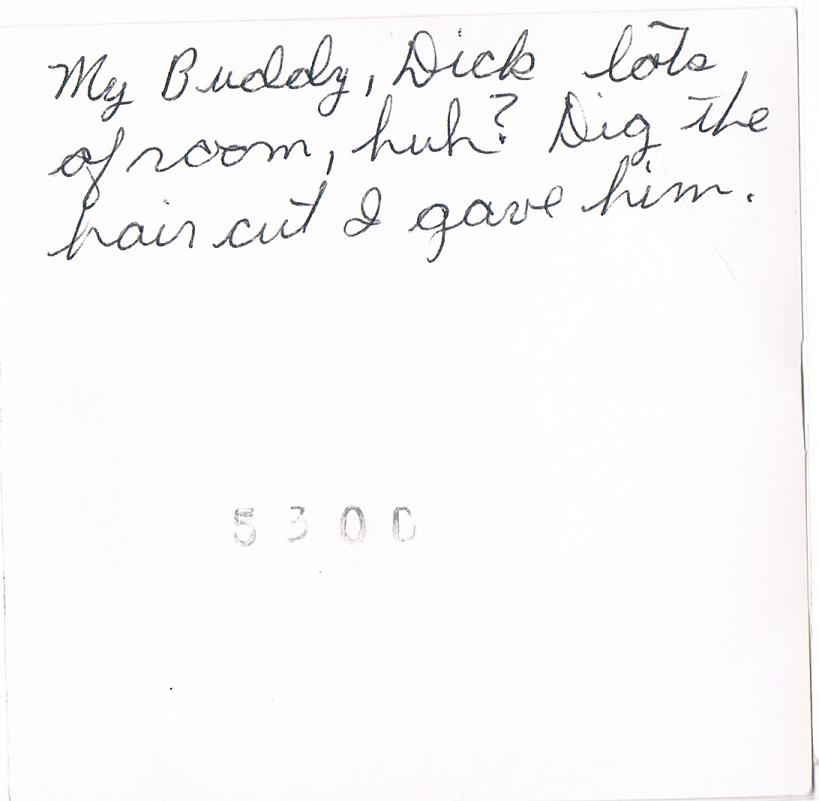 My Buddy, Dick lots
of room, huh? Dig the
hair cut I gave him.
5300